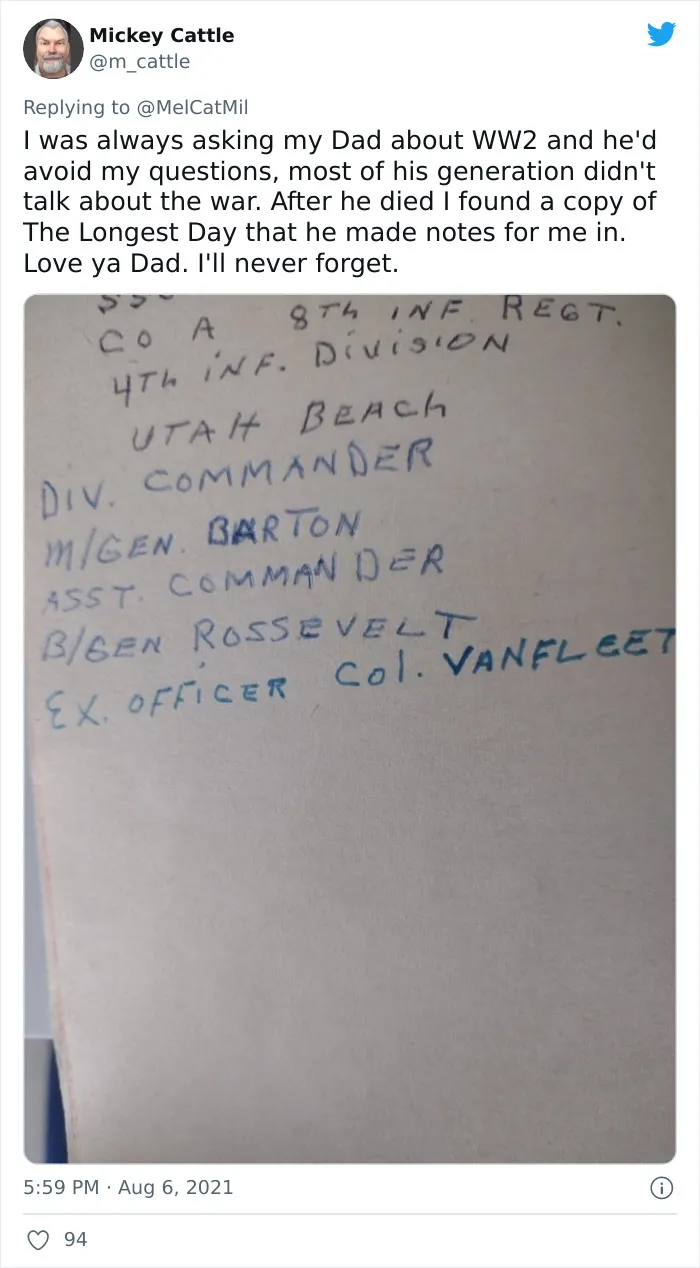 Mickey Cattle
@m_cattle
Replying to @MelCatMil
I was always asking my Dad about WW2 and he'd
avoid my questions, most of his generation didn't
talk about the war. After he died I found a copy of
The Longest Day that he made notes for me in.
Love ya Dad. I'll never forget.
CO A 8Th INF. REGT.
4Th INF. DivisiON
UTAH BEACh
DIV. COMMANDER
M/GEN. BARTON
ASST. COMMANDER
B/GEN ROSSEVELT
EX. OFFICER Col. VANFLEET
5:59 PM · Aug 6, 2021
94